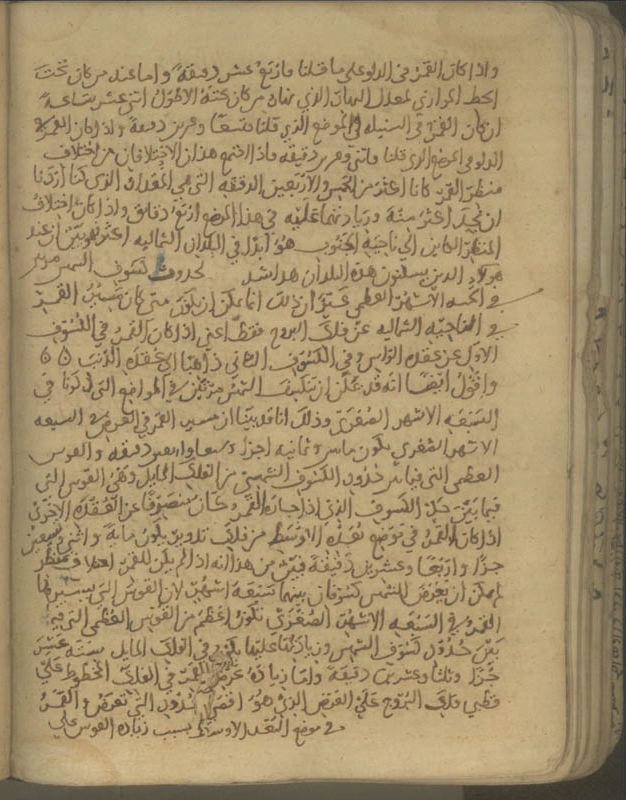 واذا كان القمر فى الدلو على ما قلنا واربع عشر دقيقة واما عند من كان تحت
الخط الموازى لمعدل النهار الذى نهاره من كان تحته الاطول اثنى عشر ساعة
ان كان القمر فى السنبلة فى الموضع الذى قلنا وتسعا وعشرين دقيقة واذا كان القمر فى
الدلو فى الموضع الذى قلنا واثنى وعشرين دقيقة فاذا اجتمع هذان الاختلافان من اختلاف
منظر القمر كانا اكثر من الخمس والاربعين الدقيقة التى هى المقدار الذى كنا اردنا
ان نجد اكثر منه وزيادتهما عليه فى هذا الموضع اربع دقائق واذا كان اختلاف
المنظر الكائن الى ناحية الجنوب هو ابدا فى البلدان الشمالية اكثر فهو بين ان عند
هولاء الذين يسكنون هذه البلدان هذا اشد لحدوث كسوف الشمس مرتين
فى الخمسة الاشهر العظمى غير ان ذلك انما يمكن ان يكون متى كان مسير القمر
فى الناحية الشمالية عن فلك البروج فقط اعنى اذا كان القمر فى الكسوف
الاول عن عقدة الراس وفى الكسوف الثانى ذاهبا الى عقدة الذنب
واقول ايضا انه قد يمكن ان تنكسف الشمس مرتين فى المواضع التى ذكرنا فى
السبعة الاشهر الصغرى وذلك انا قد بينا ان مسير القمر فى العرض فى السبعة
الاشهر الصغرى يكون مائتين وثمانية اجزاء دقيقة والقوس
العظمى التى فيما بين حدود الكسوف الشمسى من الفلك المايل وهى القوس التى
فيما بين حد الكسوف الذى اذا جازه القمر وكان منصرفا عن العقدة الاخرى
اذا كان القمر فى موضع بعده الاوسط من فلك تدويره يكون مائة واثنى وتسعين
جزءا واربعا وعشرين دقيقة فبين من هذا انه اذا لم يكن للقمر اختلاف منظر
لم يمكن ان يعرض للشمس كسوفان بينهما سبعة اشهر لان القوس التى يسيرها
القمر فى السبعة الاشهر الصغرى تكون اعظم من القوس العظمى التى فيما
بين حدود كسوف الشمس وزيادتها عليها يكون فى الفلك المايل ستة عشر
جزءا وثلثا وعشرين دقيقة واما زيادة عرض القمر فى الفلك المخطوط على
قطبى فلك البروج على العرض الذى هو اقصى الحدود التى تعرض القمر
فى موضع البعد الاوسط بسبب زيادة القوس على